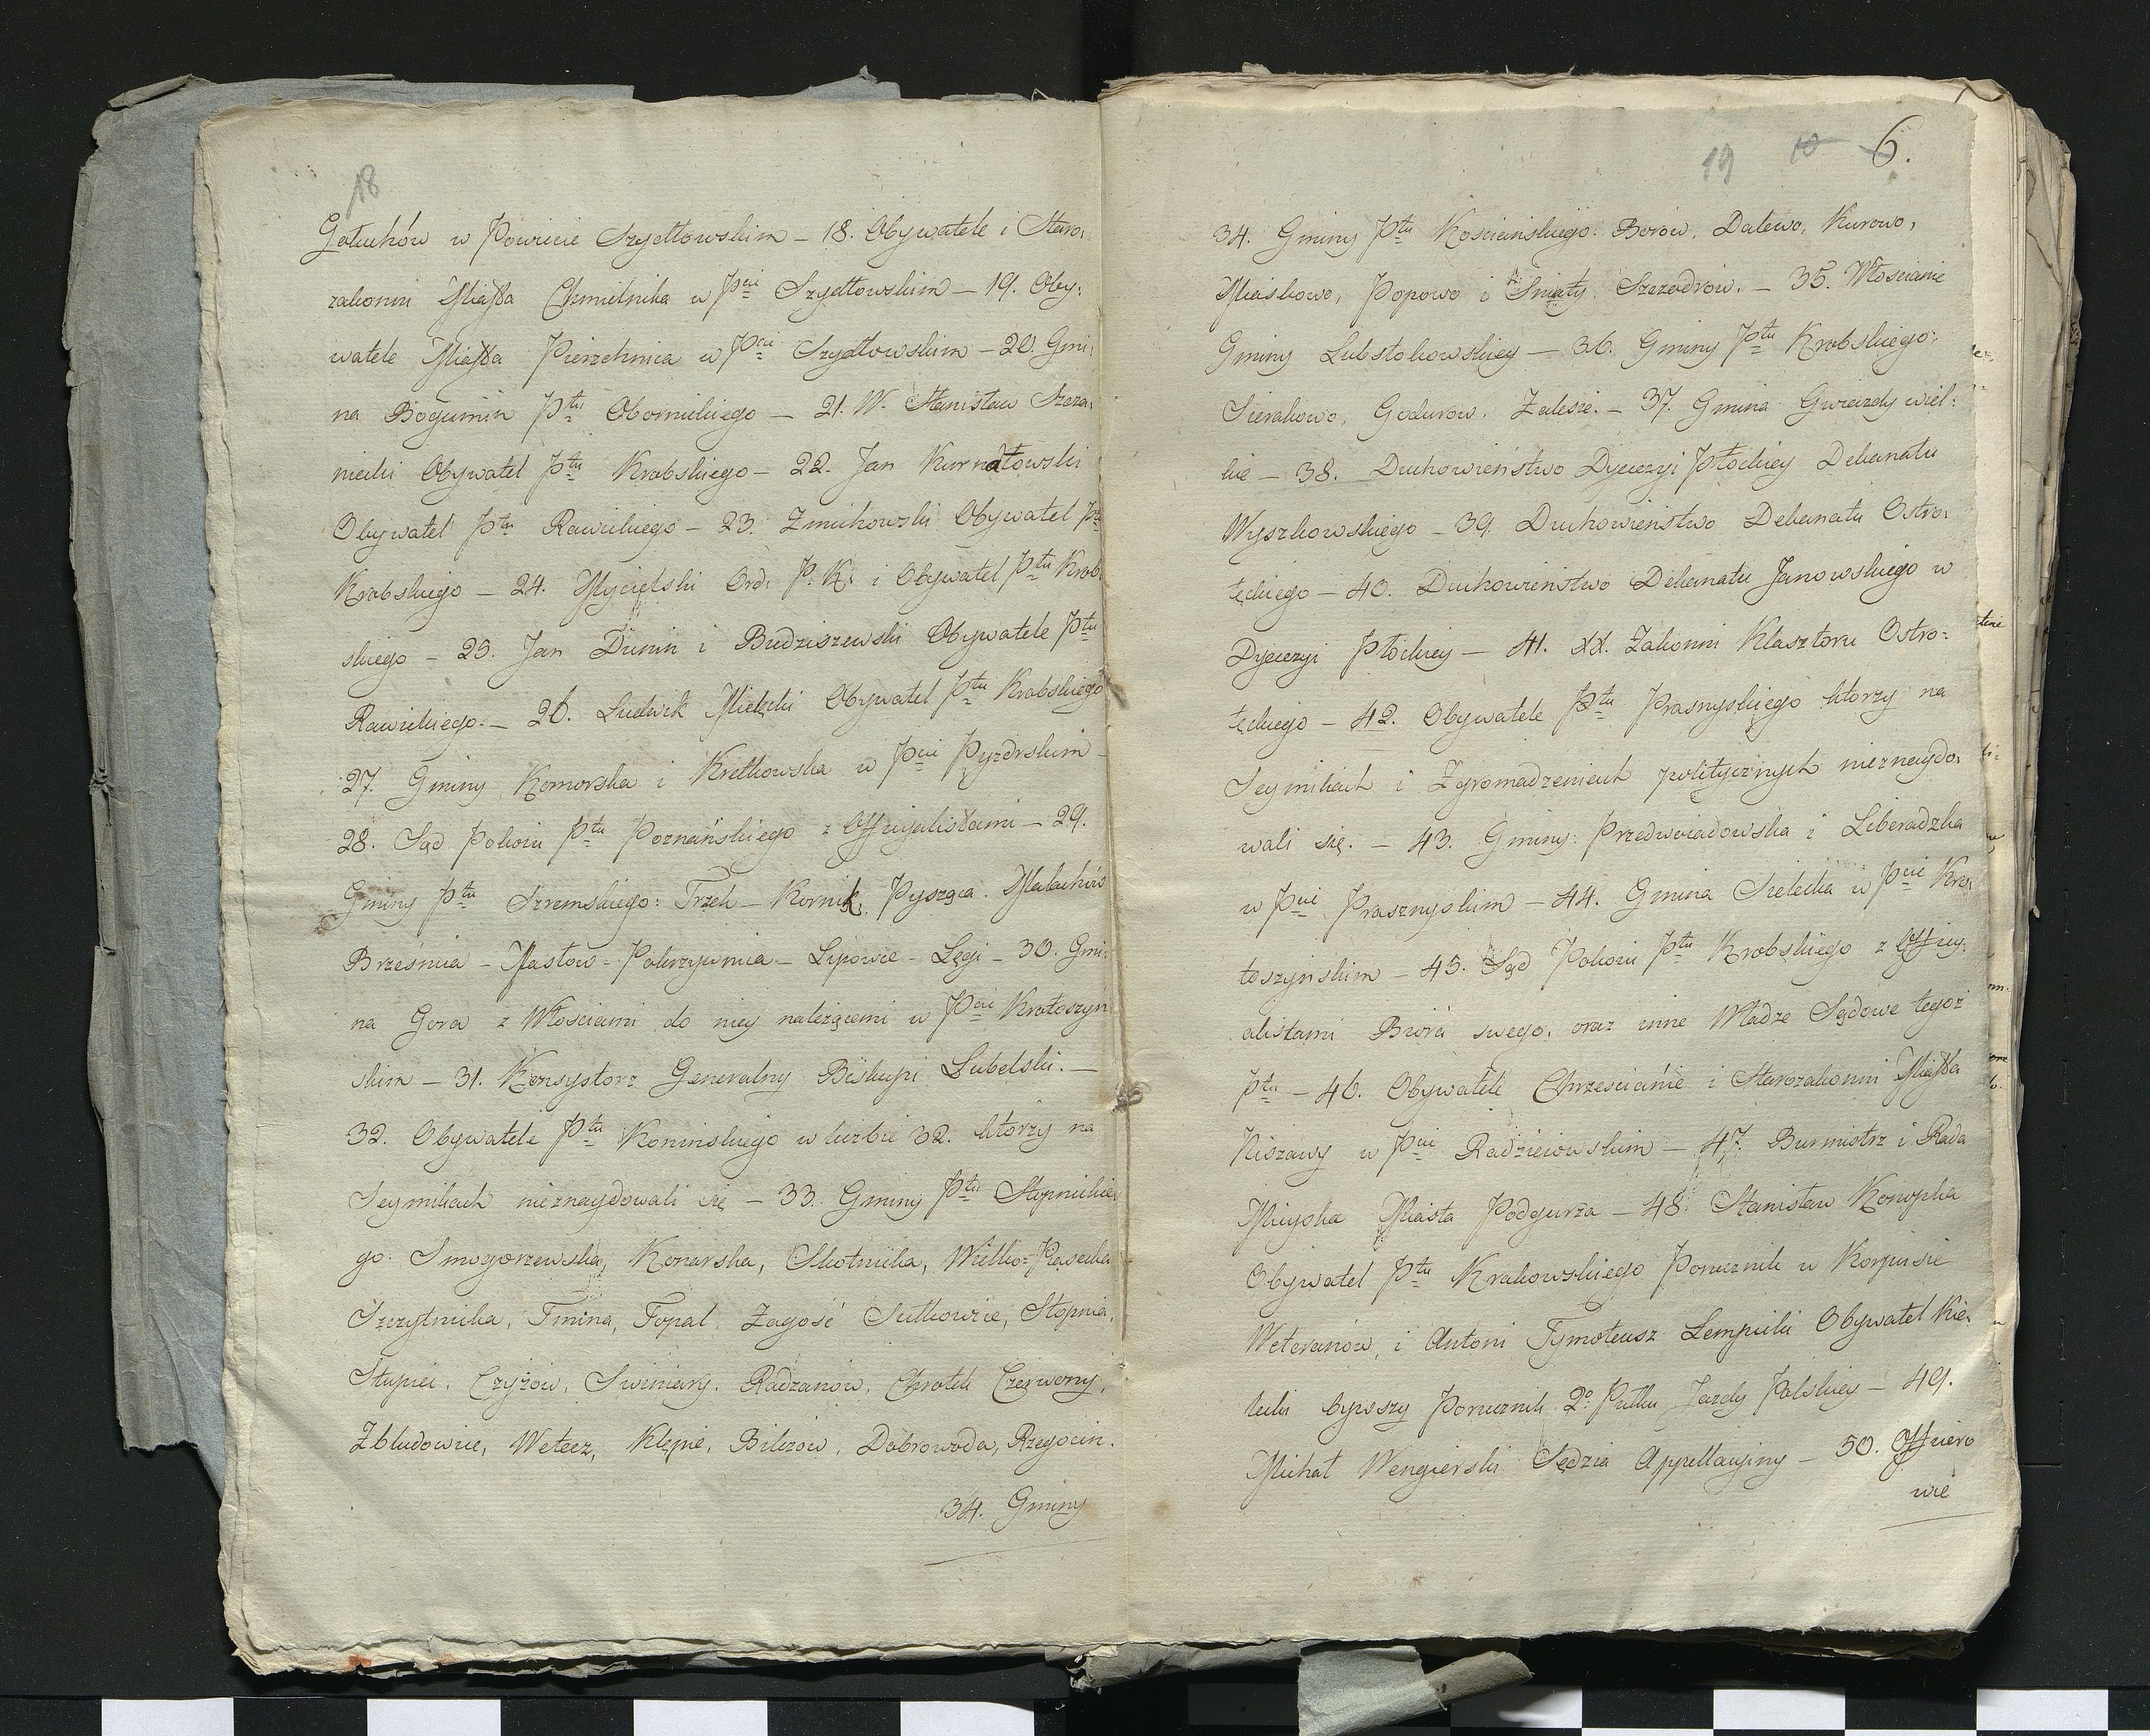 18
Gołuchów w Powiecie Szydłowskim – 18. Obywatele i Staro:
zakonni Miasta Chmielnika w Pcie Szydłowskim – 19. Oby:
watele Miasta Pierzchnica w Pcie Szydłowskim – 20. Gmi:
na Bogumin Ptu Obornickiego – 21. W. Stanisław Szcza:
niecki Obywatel Ptu Krobskiego – 22. Jan Kurnatowski
Obywatel Ptu Rawickiego – 23. Żmichowski Obywatel Ptu
Krobskiego – 24. Mycielski Ord: P. K: i Obywatel Ptu Krob:
skiego – 25. Jan Dunin i Budziszewski Obywatele Ptu
Rawickiego. – 26. Ludwik Mielęcki Obywatel Ptu Krobskiego
27. Gminy Komorska i Kretkowska w Pcie Pyzdrskim –
28. Sąd Pokoiu Ptu Poznańskiego z Officyalistami – 29.
Gminy Ptu Szremskiego: Trzek – Kornik, Pysząca. Małachów
Brześnia – Mastow – Pokrzywnia – Lipowie – Lęgi – 30. Gmi:
na Gora z Włościami do niey należącemi w Pcie Krotoszyn
skim – 31. Konsystorz Generalny Biskupi Lubelski. –
32. Obywatele Ptu Konińskiego w liczbie 32. którzy na
Seymikach nieznaydowali się – 33. Gminy Ptu Stopnickie
go: Smogorzewska, Konarska, Skotnicka, Wielko-Piasecka
Szczytnicka, Tmina, Topal, Zagość Sutkowice, Stopnia,
Słupiei, Czyżow, Swiniary, Radzanów, Chrotek Czerwony,
Zbludowice, Wełecz, Klępie, Bilczow, Dobrowoda, Rzegocin.
34. Gminy
19 10 6.
34. Gminy Ptu Kościańskiego: Borów, Dalewo, Kurowo,
Miaskowo, Popowo i Sniaty Szczodrów. – 35. Włościanie
Gminy Lubstokowskiey – 36. Gminy Ptu Krobskiego:
Sierakowo, Godurow, Zalesie. – 37. Gmina Gwiazdy wiel:
kie – 38. Duchowieństwo Dyecezyi Płockiey Dekanatu
Wyszkowskiego – 39. Duchowieństwo Dekanatu Ostro:
łęckiego – 40. Duchowieństwo Dekanatu Janowskiego w
Dyecezyi Płockiey – 41. XX. Zakonni Klasztoru Ostro:
łęckiego – 42. Obywatele Ptu Prasnyskiego którzy na
Seymikach i Zgromadzeniach politycznych nieznaydo:
wali się. – 43. Gminy: Przedwoiadowska i Liberadzka
w Pcie Prasznyskim – 44. Gmina Sielecka w Pcie Kro:
toszyńskim – 45. Sąd Pokoiu Ptu Krobskiego z Officy:
alistami Biora swego, oraz inne Władze Sądowe tegoż
Ptu – 46. Obywatele Chrześcianie i Starozakonni Miasta
Niszawy w Pcie Radzieiowskim – 47. Burmistrz i Rada
Mieyska Miasta Podgurza – 48. Stanisław Konopka
Obywatel Ptu Krakowskiego Porucznik w Korpusie
Weteranów, i Antoni Tymoteusz Lempicki Obywatel Kie:
lecki bywszy Porucznik 2o Pułku Jazdy Polskiey – 49.
Michał Wengierski Sędzia Appellacyiny – 50. Officero
wie